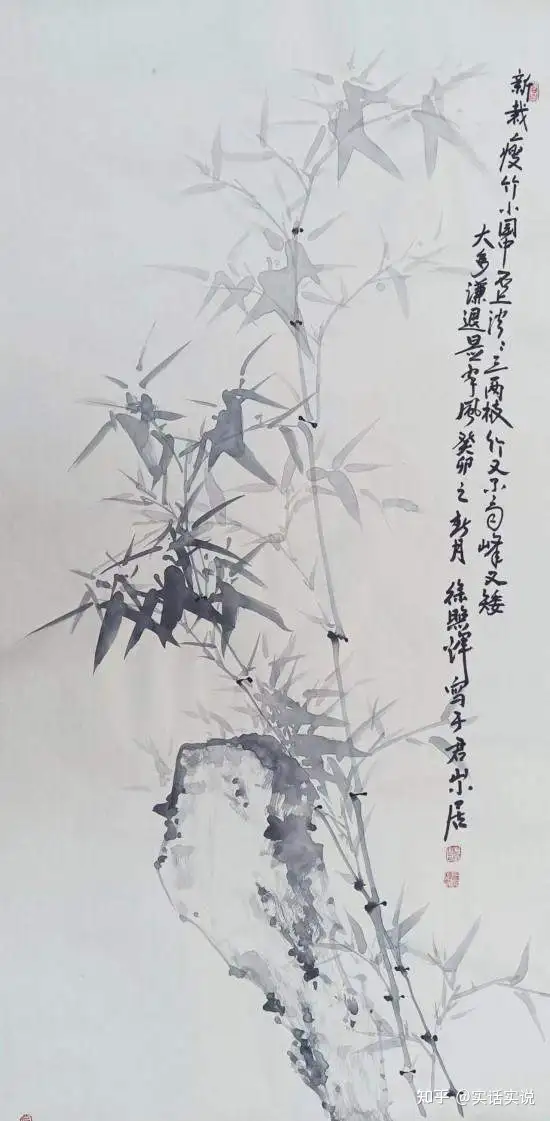 新栽瘦竹小園中石上淒々三两枝竹又不高峰又矮
大多谦退是家风癸卯之新月徐照辉写于君山居
知乎 @实话实说